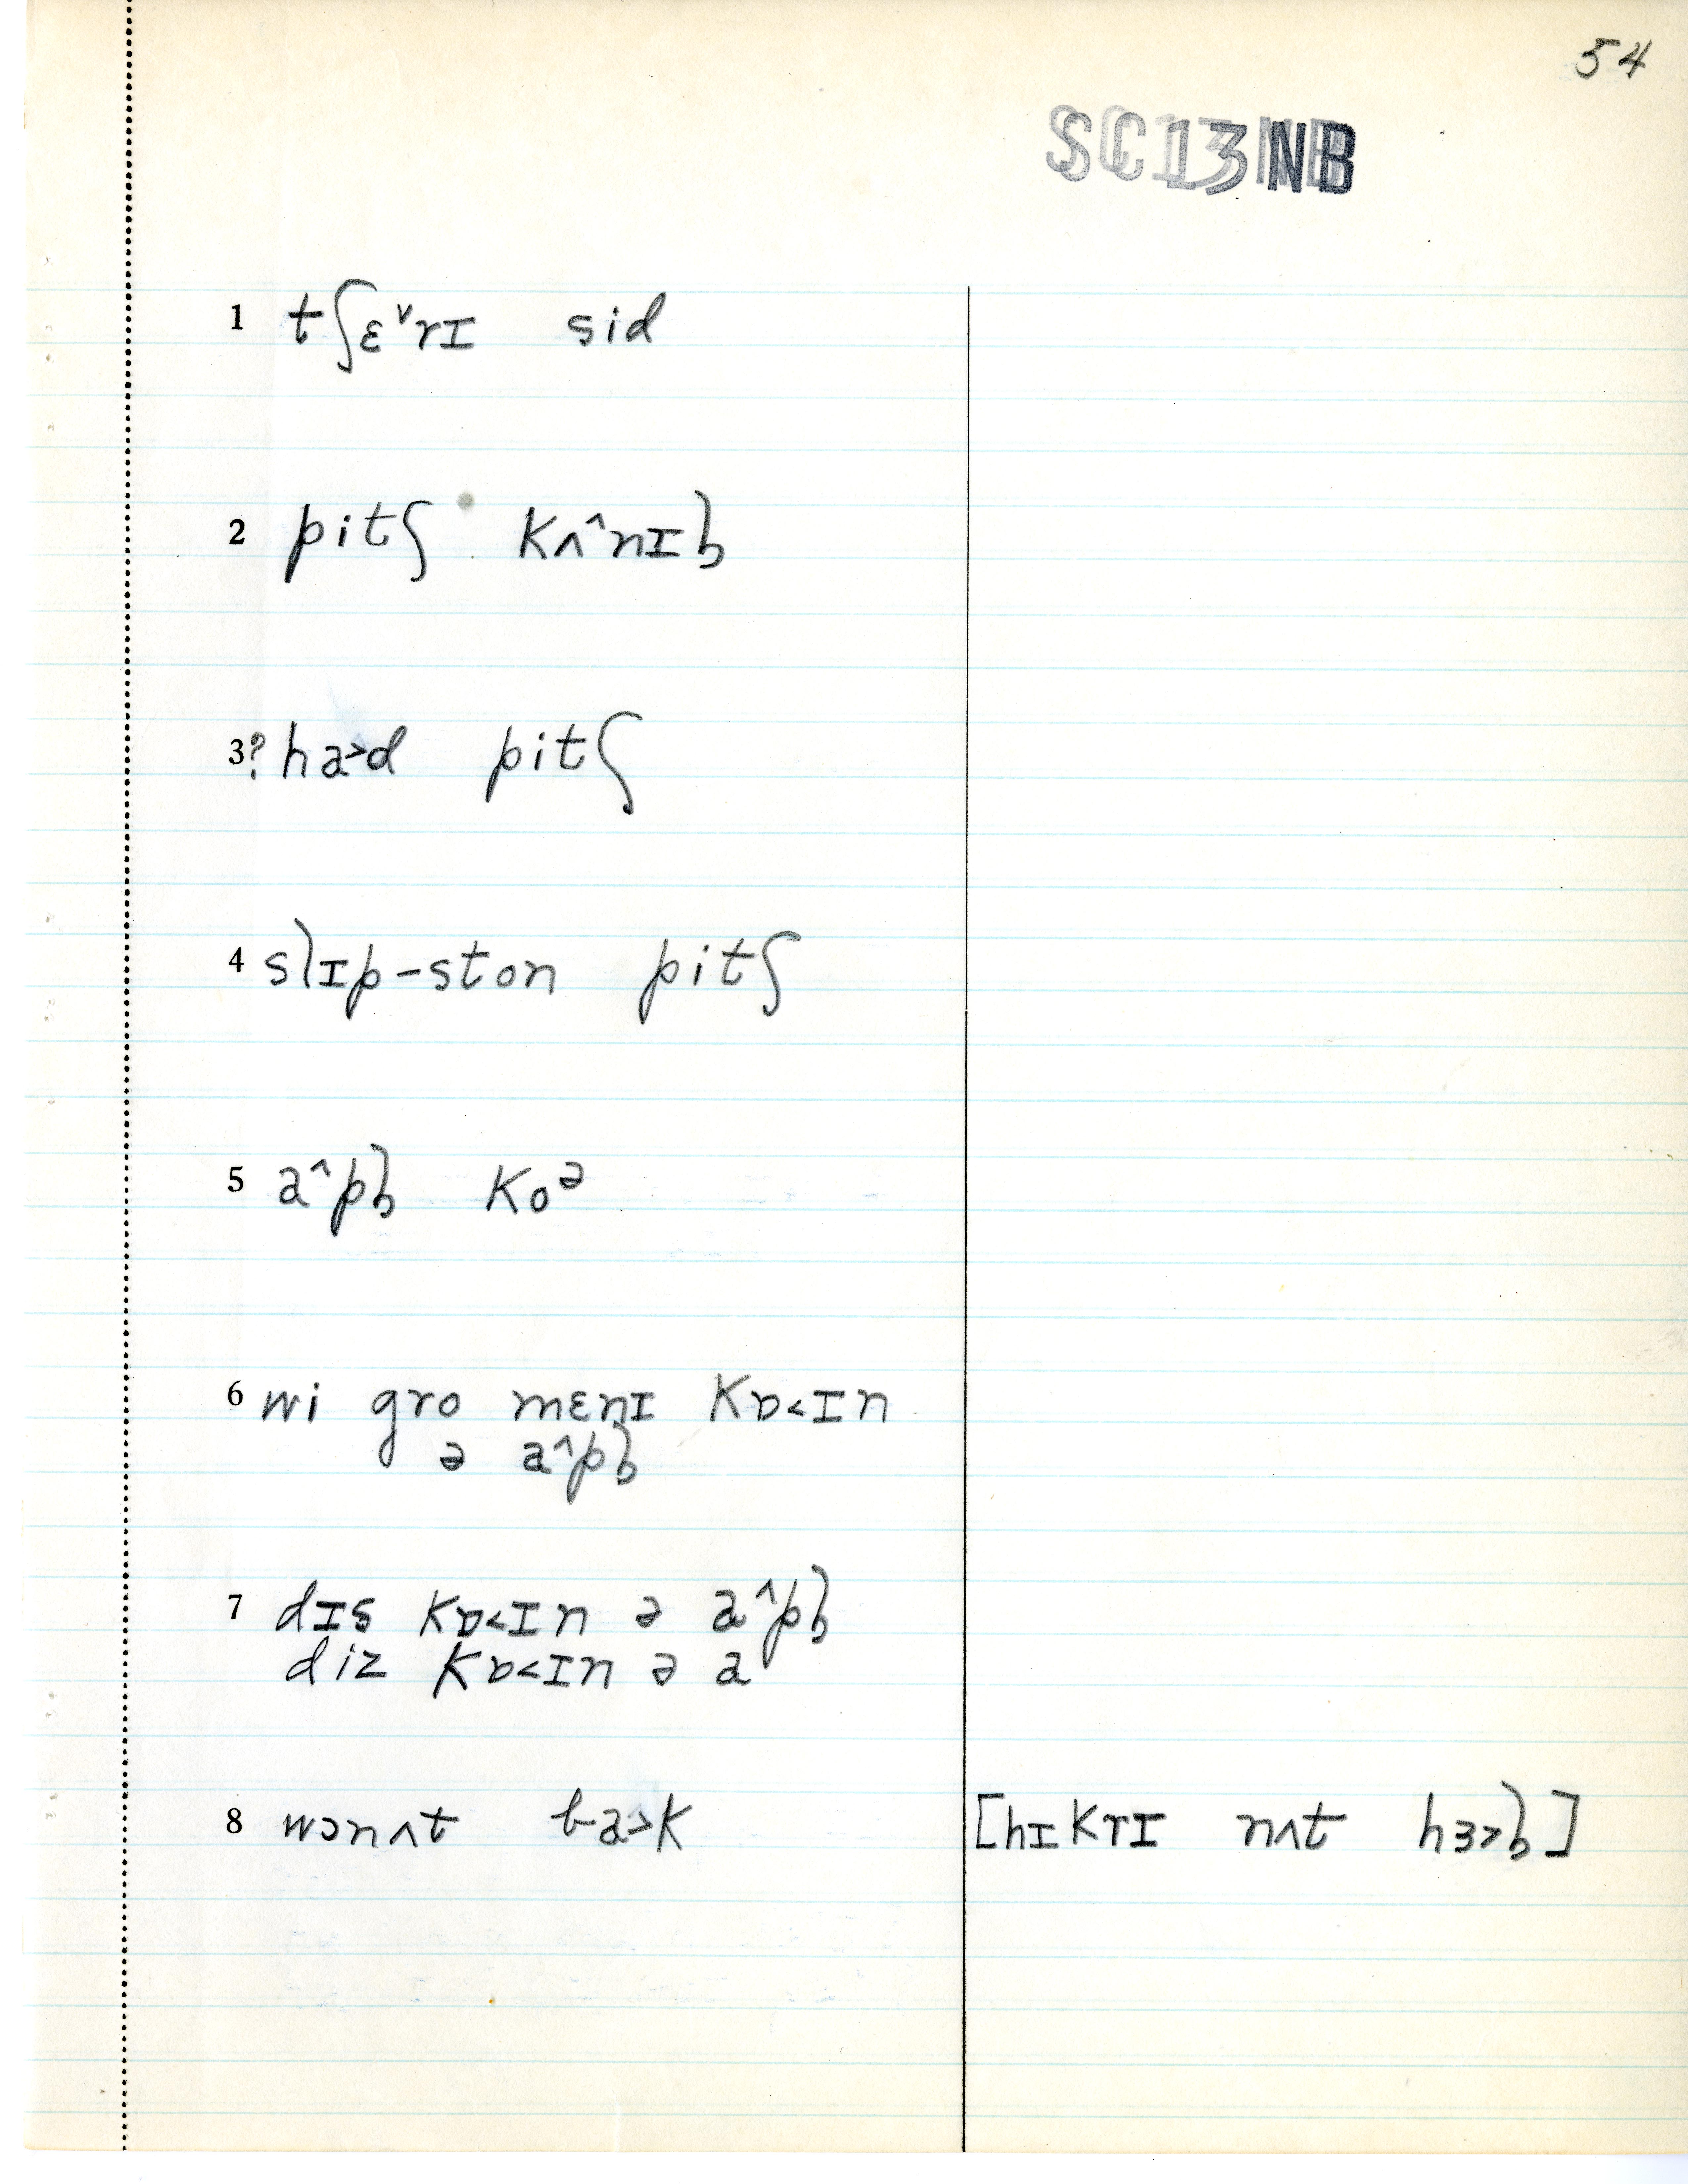 54
SC13NB
1 tʃɛ˅rɪ sid
2 pitʃ kʌ^nɪɫ
3 ? ha>d pitʃ
4 slɪp-ston pitʃ
5 a^pɫ koᵊ
6 wi gro mɛnɪ kɒ<ɪn
ə a^pɫ
7 dɪs kɒ<ɪn ə a^pɫ
diz kɒ<ɪn ə a
8 wɔnʌt ba>k [hɪkrɪ nʌt hɜ>ɫ]